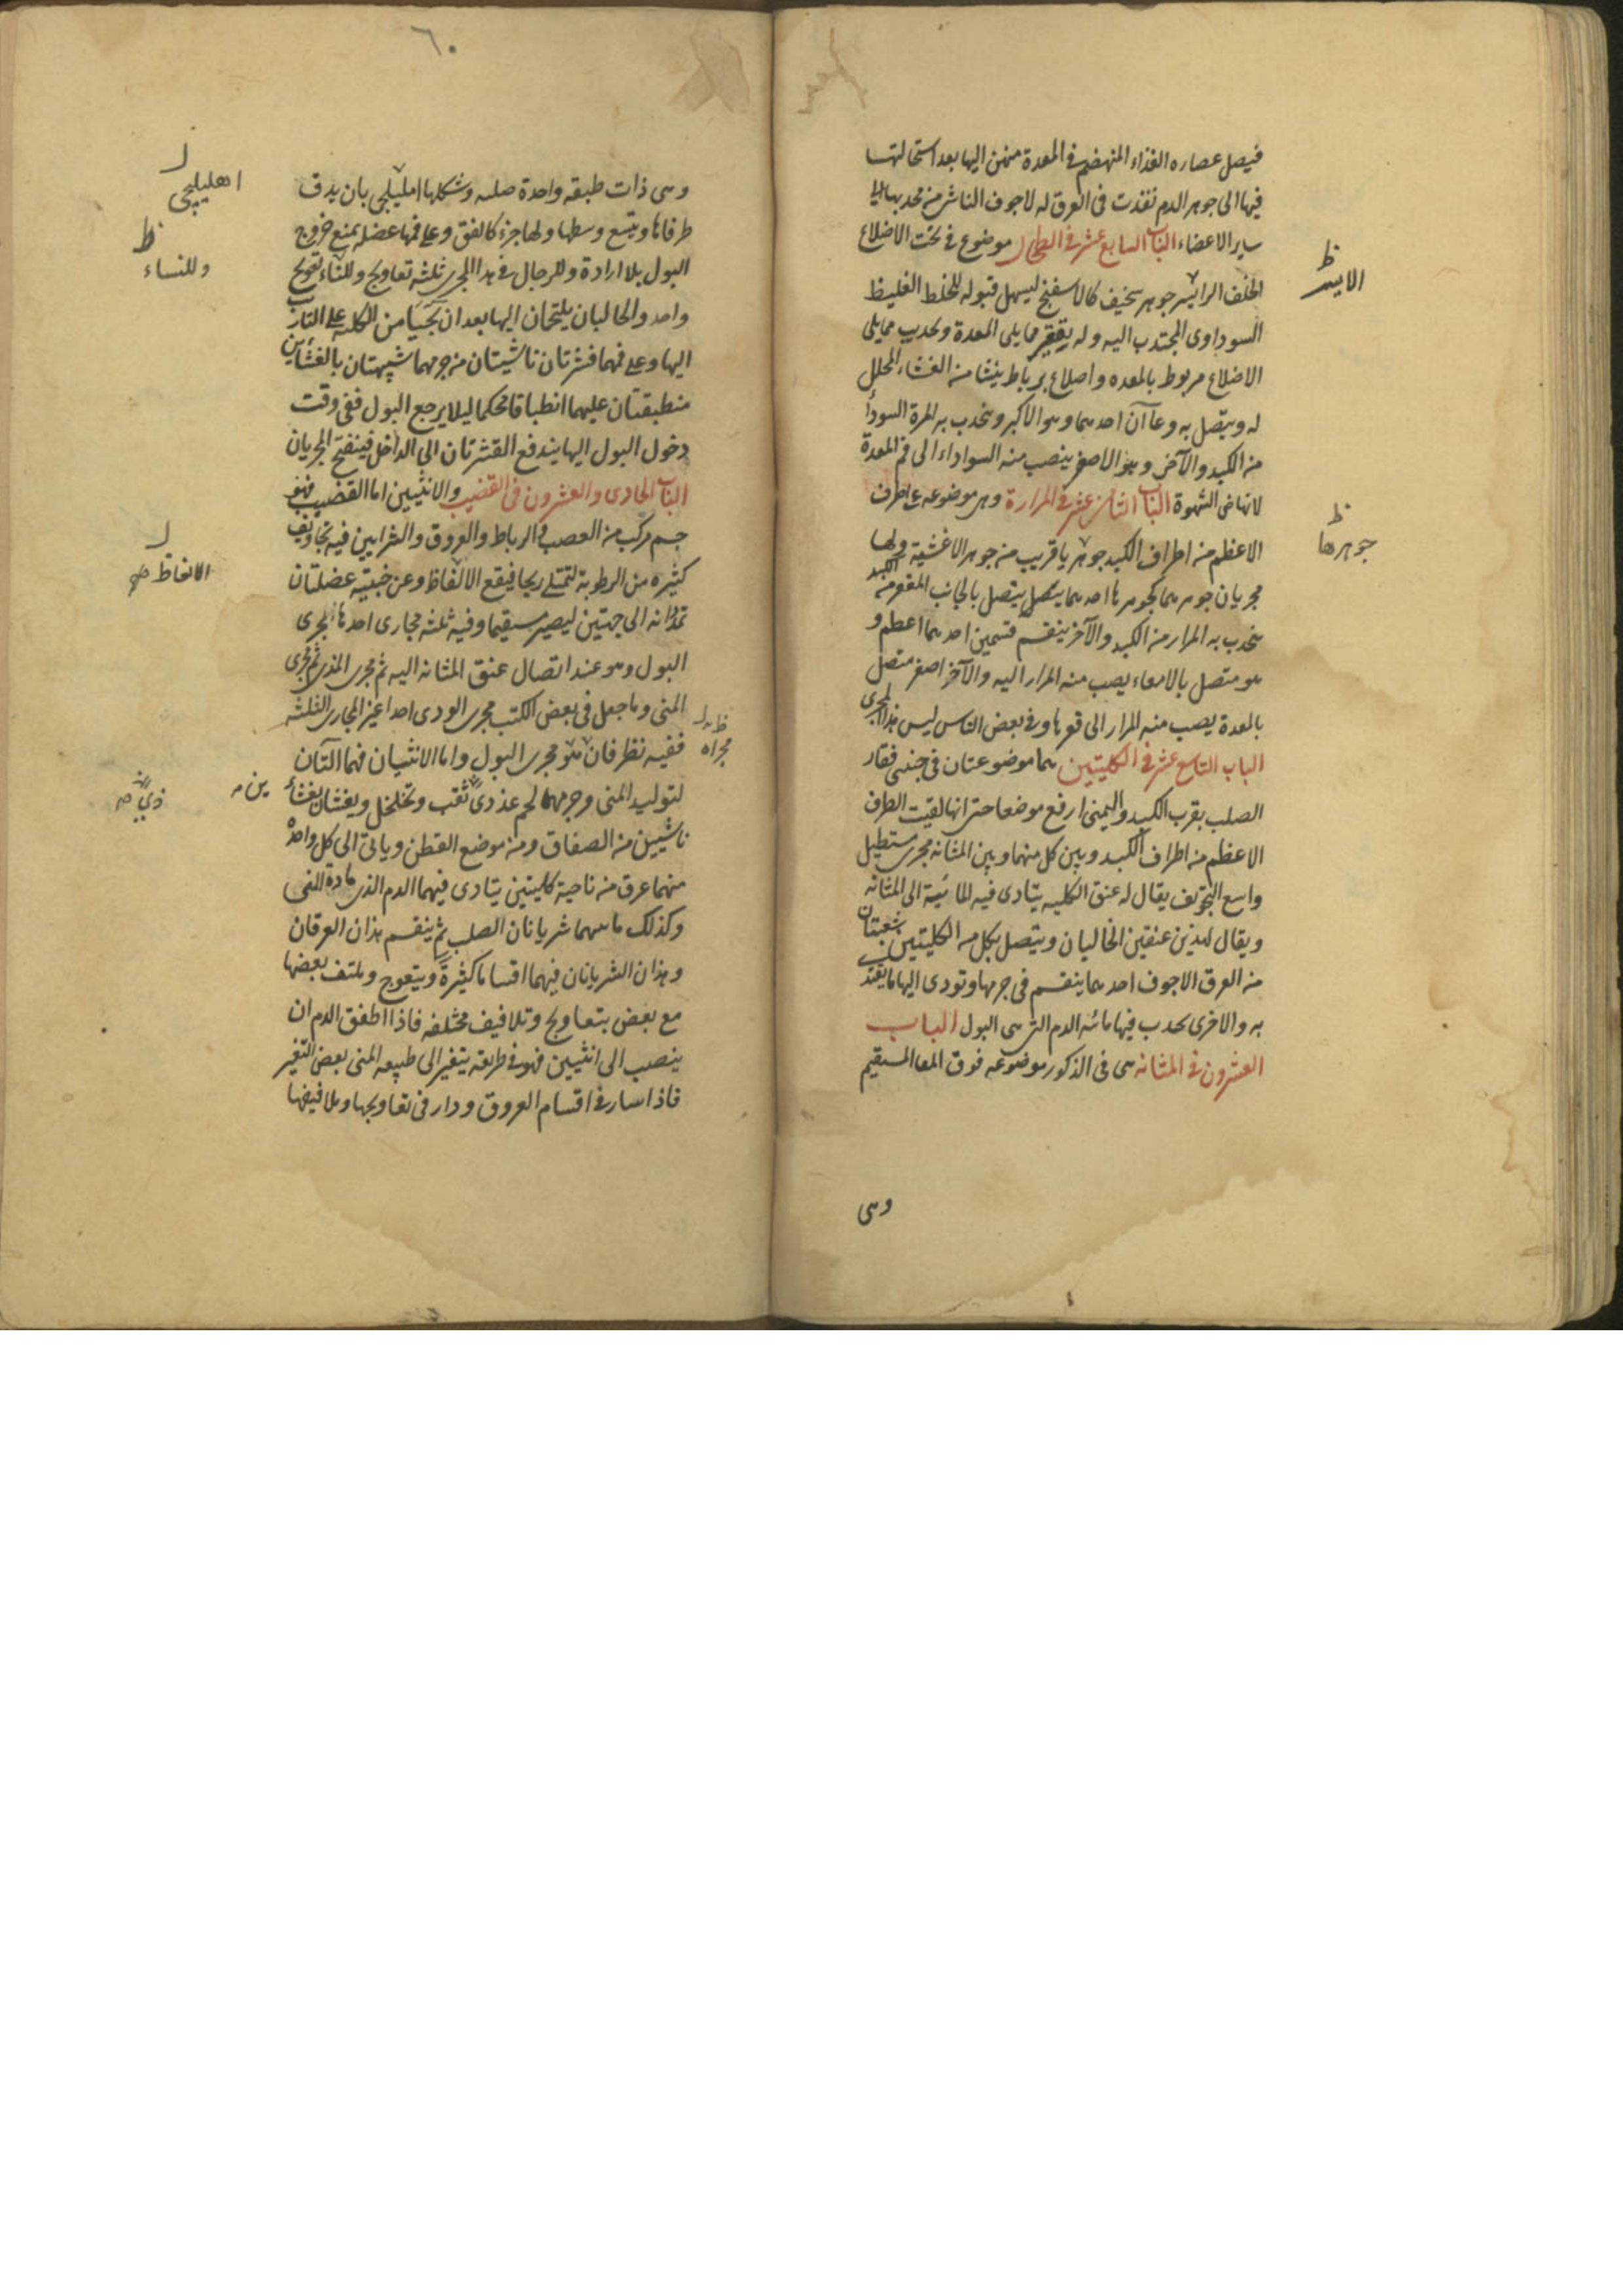 فيصل عصاره الغذاء المنهضم في المعدة منهن اليها بعد استحالتها
فيها الى جوهر الدم نفذت فى العرق له لاجوف الناش من محدبها الى
ساير الاعضاء الباب السابع عشر فى الطحال موضوع فى تحت الاضلاع
الخلف الرايسر جوهر سخيف كالاسفنج ليسهل قبوله للخلط الغليظ
السوداوى المجتدب اليه وله يقعير مما يلى المعدة وتحديب مما يلى
الاضلاع مربوط بالمعده واضلاع برباط ينشا من الغشاء المحلل
له ويتصل به وعاآن احدهما وهو الاكبر وينجذب به المرة السودا
من الكبد والآخر وهو الاصغر ينصب منه السواداء الى فم المعدة
لانهاض الشهوة الباب الثامن عشر فى المرارة وهى موضوعه على طرف
الاعظم من اطراف الكبد جوهر يا قريب من جوهر الاغشية ولها
مجريان جوهرهما كجوهرها احدهما يتصل بالجانب المقعر من الكبد
ينجذب به المرار من الكبد والآخر ينقسم قسمين احدهما اعظم و
هو متصل بالامعاء يصب منه المرار اليه والآخر اصغر متصل
بالمعدة يصب منه المرار الى قعرها وفى بعض الناس ليس هذا المجرى
الباب التاسع عشر فى الكليتين هما موضوعتان فى جنبى فقار
الصلب بقرب الكبد واليمنى ارفع موضعا حتى انها لقيت الطرف
الاعظم من اطراف الكبد وبين كل منهما وبين المثانه مجرى مستطيل
واسع التجويف يقال له عنق الكليه يتادى فيه المائية الى المثانه
ويقال لهذين عنقين الحالبان ويتصل بكل من الكليتين شعبتان
من العرق الاجوف احدهما ينقسم فى جرمها وتودى اليها ما يغتذى
به والاخرى يجذب فيها مائه الدم التى هى البول الباب
العشرون فى المثانه هى فى الذكور موضوعه فوق المعا المستقيم
وهى
ظ
الايسر
ظ
جوهرها
٦٠
وهى ذات طبقه واحدة صلبه وشكلها امليلجى بان يدق
طرفاها ويتسع وسطها ولها جزء كالعنق وعلى فمها عضله يمنع خروج
البول بلا ارادة وللرجال فى هذا المجرى ثلثه تعاويج وللناء تعويج
واحد والحالبان يلتجان اليها بعد ان يجيئا من الكليه على التارب
اليها وعلى فمهما قشرتان ناشيتان من جرمهما شبيهتان بالغشائين
منطبقتان عليهما انطباقا محكما ليلا يرجع البول ففى وقت
دخول البول اليها يندفع القشرتان الى الداخل فينفتح المجريان
الباب الحادى والعشرون فى القضيب والانثيين اما القضيب فهو
جسم مركب من العصب والرباط والعروق والشرايين فيه تجاويف
كثيره من الرطوبة لتمتلى ريحا فيقع الالفاظ وعن جنبتيه عضلتان
تمدانه الى جهتين ليصير مستقيما وفيه ثلثه مجارى احدها مجرى
البول وهو عند اتصال عنق المثانه اليه ثم مجرى المذى ثم مجرى
المنى وما جعل فى بعض الكتب مجرى الودى احدا غير المجارى الثلثه
ففيه نظر فان هو مجرى البول واما الانثيان فهما التان
لتوليد المنى وجرمهما لحم غددى ثقب وتخلخل ويغشان بغشا
ناشيين من الصفاق ومن موضع القطن وياتى الى كل واحد
منهما عرق من ناحية كليتين يتادى فيهما الدم الذى مادة المنى
وكذلك ماسهما شريانان الصلب ثم ينقسم هذان العرقان
وهذان الشريانان فيهما اقساما كثيرة ويتعوج وملتف بعضها
مع بعض بتعاويج وتلافيف مختلفه فاذا اطفق الدم ان
ينصب الى انثيين فهو فى طريقه يتغير الى طبيعه المنى بعض التغير
فاذا سار فى اقسام العروق ودار فى تعاويجها وتلافيفها
ل
اهليلجى
ظ
وللنساء
ل
الانعاظ صح
ظ
مجراه
ين